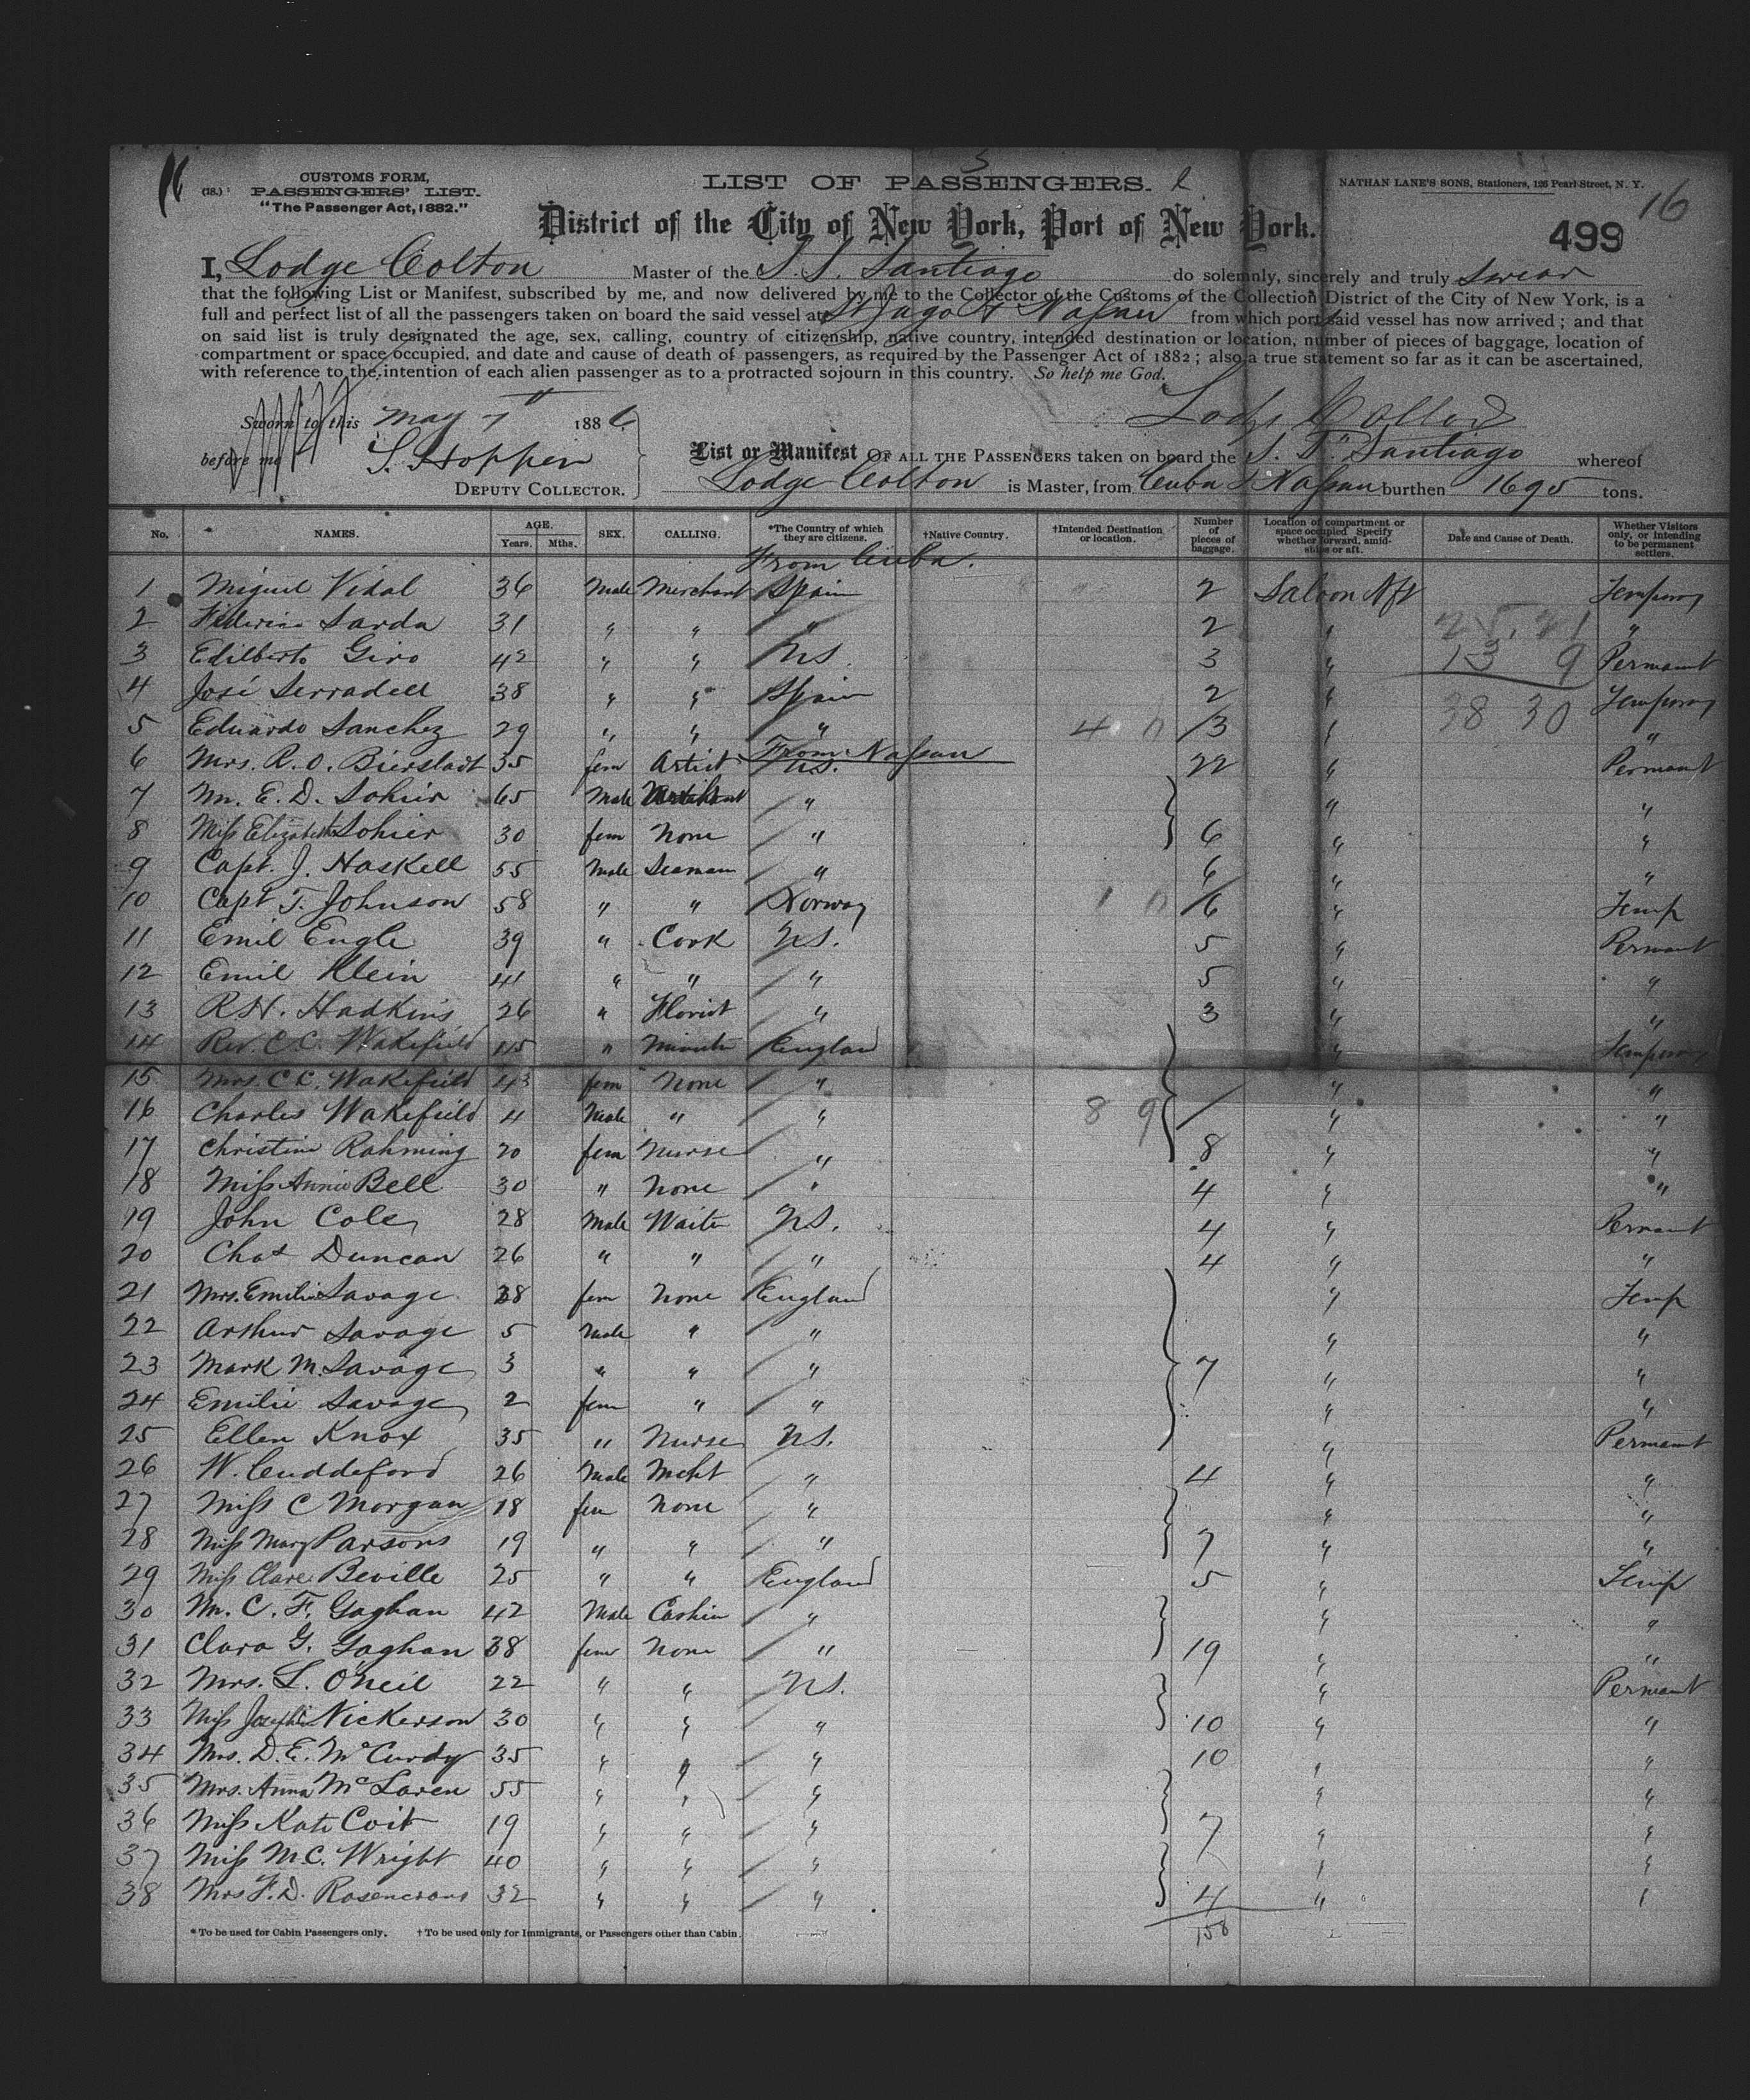 16
CUSTOMS FORM,
(18.)
PASSENGERS' LIST.
"The Passenger Act, 1882."
LIST OF PASSENGERS.
NATHAN LANE'S SONS, Stationers, 126 Pearl Street, N. Y.
16
District of the City of New York, Port of New York.
499
I, Lodge Colton Master of the S. S. Santiago do solemnly, sincerely and truly swear
that the following List or Manifest, subscribed by me, and now delivered by me to the Collector of the Customs of the Collection District of the City of New York, is a
full and perfect list of all the passengers taken on board the said vessel at St Jago & Nassau from which port said vessel has now arrived; and that
on said list is truly designated the age, sex, calling, country of citizenship, native country, intended destination or location, number of pieces of baggage, location of
compartment or space occupied, and date and cause of death of passengers, as required by the Passenger Act of 1882; also a true statement so far as it can be ascertained,
with reference to the intention of each alien passenger as to a protracted sojourn in this country. So help me God.
Sworn to this May 7 1886
Lodge Colton
before me S. Hopper
DEPUTY COLLECTOR.
List or Manifest OF ALL THE PASSENGERS taken on board the S. S. Santiago whereof
Lodge Colton is Master, from Cuba & Nassau burthen 1695 tons.
No. NAMES. AGE. Years. Mths. SEX. CALLING. *The Country of which they are citizens. †Native Country. †Intended Destination or location. Number of pieces of baggage. Location of compartment or space occupied Specify whether forward, amidships or aft. Date and Cause of Death. Whether Visitors only, or intending to be permanent settlers.
From Cuba.
1 Miguel Vidal 36 Male Merchant Spain 2 Saloon Aft Temporary
2 Sarda 31 " " " 2 " 25, 21 "
3 Edilberto Giro 42 " " U.S. 3 " 13 9 Permant
4 José Serradell 38 " " Spain 2 " 38 30 Temporary
5 Eduardo Sanchez 29 " " " 4 0 3 " "
From Nassau
6 Mrs. R. O. Bierstadt 35 fem Artist U.S. 22 " Permant
7 Mr. E. D. Sohier 65 Male " " "
8 Miss Elizabeth Sohier 30 fem None " 6 " "
9 Capt. J. Haskell 55 Male Seaman " 6 " "
10 Capt T. Johnson 58 " " Norway 1 0 6 " Temp
11 Emil Engle 39 " Cook U.S. 5 " Permant
12 Emil Klein 41 " " " 5 " "
13 R.H. Hadkins 26 " Florist " 3 " "
14 Rev. C.C. Wakefield 45 " Minister England " Temporary
15 Mrs. C.C. Wakefield 43 fem None " " "
16 Charles Wakefield 4 Male " " 8 9 " "
17 Christine Rahming 20 fem Nurse " 8 " "
18 Miss Annie Bell 30 " None " 4 " "
19 John Cole 28 Male Waiter U.S. 4 " Permant
20 Chas Duncan 26 " " " 4 " "
21 Mrs. Emilie Savage 38 fem None England " Temp
22 Arthur Savage 5 Male " " " "
23 Mark M. Savage 3 " " " 7 " "
24 Emilie Savage 2 fem " " " "
25 Ellen Knox 35 " Nurse U.S. " Permant
26 W. Cuddeford 26 Male Mcht " 4 " "
27 Miss C Morgan 18 fem None " " "
28 Miss Mary Parsons 19 " " " 7 " "
29 Miss Clare Beville 25 " " England 5 " Temp
30 Mr. C. F. Gaghan 42 Male Cashier " " "
31 Clara G. Gaghan 38 fem None " 19 " "
32 Mrs. L. O'Neil 22 " " U.S. " Permant
33 Miss Josephine Nickerson 30 " " " 10 " "
34 Mrs. D. E. McCurdy 35 " " " 10 " "
35 Mrs. Anna McLaren 55 " " " " "
36 Miss Kate Coit 19 " " " 7 " "
37 Miss M.C. Wright 40 " " " " "
38 Mrs F. D. Rosencrans 32 " " " 4 " "
158
* To be used for Cabin Passengers only. † To be used only for Immigrants, or Passengers other than Cabin.